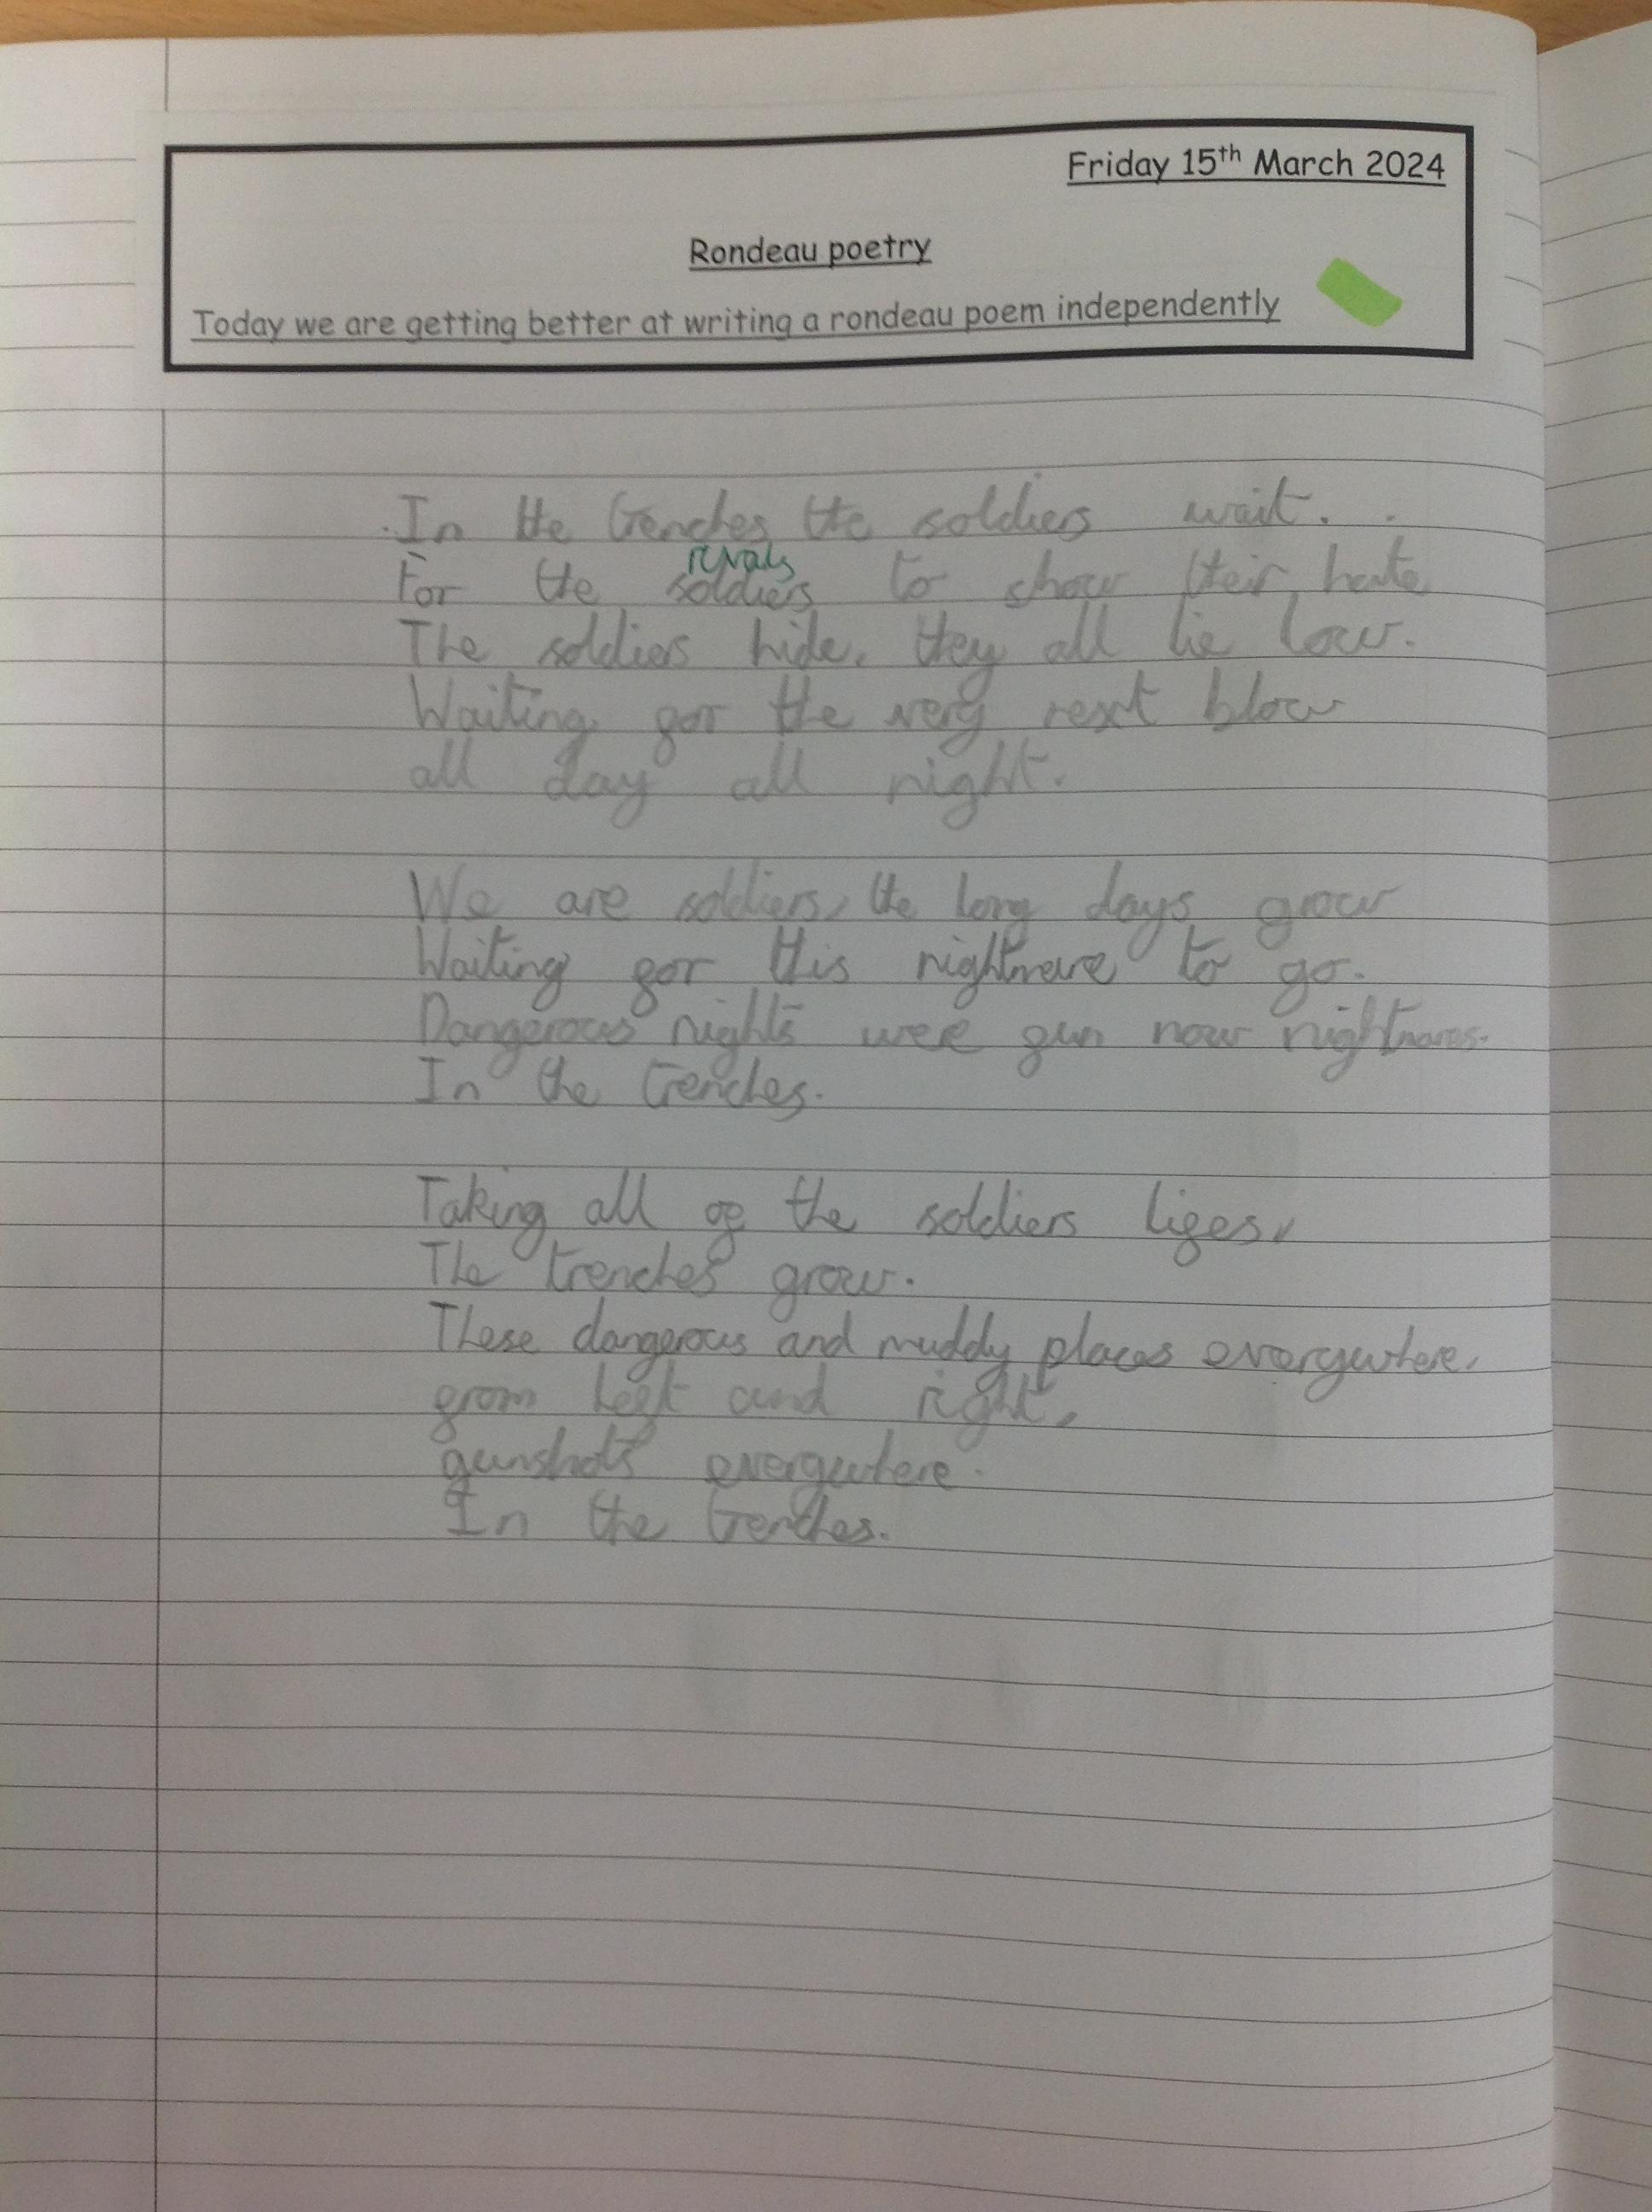 Friday 15th March 2024
Rondeau poetry
Today we are getting better at writing a rondeau poem independently
In the trenches the soldiers wait.
rivals
For the soldiers to show their hate
The soldiers hide, they all lie low.
Waiting for the very next blow
all day all night.
We are soldiers, the long days grow
Waiting for this nightmare to go.
Dangerous nights were fun now nightmares.
In the trenches.
Taking all of the soldiers lifes,
The trenches grow.
These dangerous and muddy places everywhere,
from left and right,
gunshots everywhere.
In the trenches.